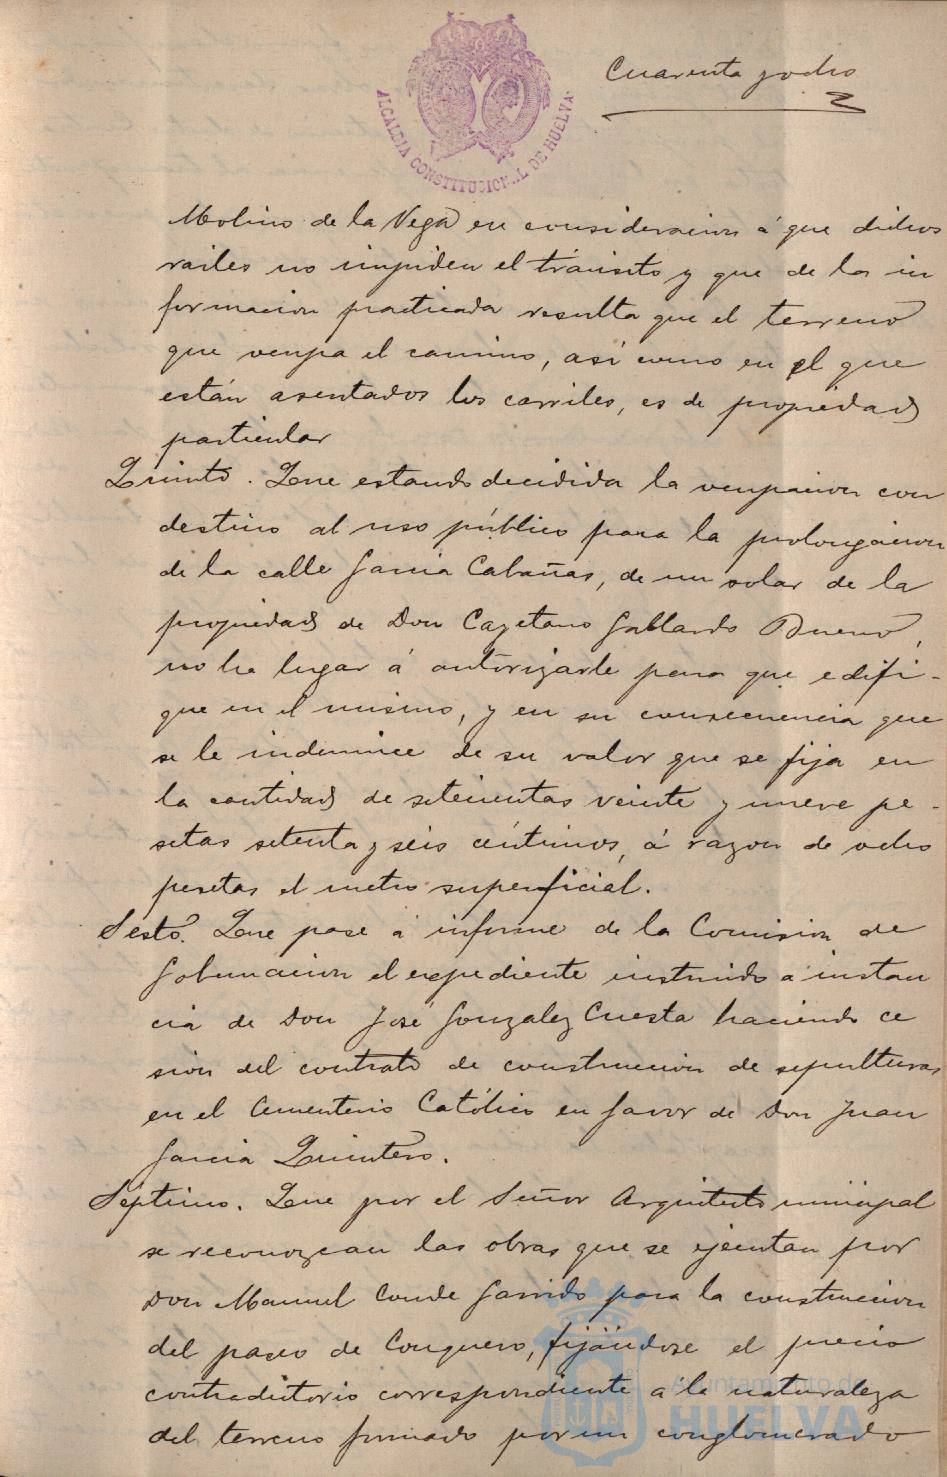 Cuarenta y ocho
ALCALDIA CONSTITUCIONAL DE HUELVA
Molino de la Vega en consideracion á que dichos
railes no impiden el tránsito y que de la in
formacion practicada resulta que el terreno
que ocupa el camino, así como en el que
están asentados los carriles, es de propiedad
particular
Quinto. Que estando decidida la ocupacion con
destino al uso público para la prolongacion
de la calle Garcia Cabañas, de un solar de la
propiedad de Don Cayetano Gallardo Bueno,
no ha lugar á autorizarle para que edifi-
que en el mismo, y en su consecuencia que
se le indemnice de su valor que se fija en
la cantidad de setecientas veinte y nueve pe-
setas setenta y seis céntimos, á razon de ocho
pesetas el metro superficial.
Sesto. Que pase á informe de la Comision de
Gobernacion el expediente instruido a instan
cia de Don José Gonzalez Cuesta haciendo ce
sion del contrato de construccion de sepulturas
en el Cementerio Católico en favor de Don Juan
Garcia Quintero.
Séptimo. Que por el Señor Arquitecto municipal
se reconozcan las obras que se ejecutan por
Don Manuel Conde Garrido para la construccion
del paseo de Conquero, fijándose el precio
contradictorio correspondiente a la naturaleza
del terreno formado por un conglomerado
Ayuntamiento de
HUELVA